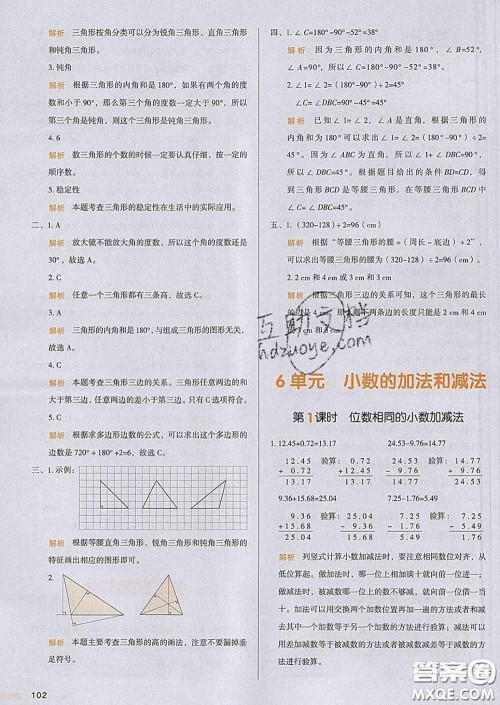 解析 三角形按角分类可以分为锐角三角形、直角三角形
和钝角三角形。
3. 钝角
解析 根据三角形的内角和是180°,如果两个角的度
数和小于90°,那么第三个角的度数一定大于90°,所以
第三个角是钝角,则这个三角形是钝角三角形。
4. 6
解析 数三角形的个数的时候一定要认真仔细,按一定的
顺序数。
5. 稳定性
解析 本题考查三角形的稳定性在生活中的实际应用。
二、1. A
解析 放大镜不能放大角的度数,所以这个角的度数还是
30°,故选 A。
2. C
解析 任意一个三角形都有三条高,故选 C。
3. A
解析 三角形的内角和是180°,与组成三角形的图形无关,
故选 A。
4. C
解析 本题考查三角形三边的关系。三角形任意两边的和
大于第三边,任意两边的差小于第三边。故选 C。
5. C
解析 根据求多边形边数的公式,可以求出这个多边形的
边数是 720° ÷ 180° +2=6。故选 C。
三、1. 示例:
解析 根据等腰直角三角形、锐角三角形和钝角三角形的
特征画出相应的图形即可。
2.
解析 本题主要考查三角形的高的画法,注意不要漏掉垂
足符号。
102
四、1. ∠C=180°-90°-52°=38°
解析 因为三角形的内角和是180°,∠B=52°,
∠A=90°,所以∠C=180°-90°-52°=38°。
2. ∠C=(180°-90°)÷2=45°
∠DBC=45°
解析 已知∠1=∠2,∠ABC是直角,根据三角形的内角和是180°,
可以求出∠1=∠2=(180°-90°)÷2=45°。
因为∠ABC为直角,所以∠DBC=90°-45°=45°。
根据题目给出的条件BD=CD,得
到三角形BCD是等腰三角形,所以在等腰三角形BCD中
∠C=∠DBC=45°。
五、1. (320-128)÷2=96(cm)
解析 根据“等腰三角形的腰=(周长-底边)÷2”,
可以求出(320-128)÷2=96(cm)。
2. 2 cm 和 4 cm 或 3 cm 和 3 cm
解析 根据三角形三边的关系可知,这个三角形的最长
的边是 4 cm,那么其他两条边的长度只能是 2 cm 和 4 cm
或 3 cm 和 3 cm。
互助文档
hdzuoye.com
6 单元 小数的加法和减法
第 1 课时 位数相同的小数加减法
1. 12.45+0.72=13.17 24.53-9.76=14.77
12.45 13.17 24.53 14.77
+ 0.72 - 0.72 - 9.76 + 9.76
13.17 12.45 14.77 24.53
9.36+15.68=25.04 7.25-1.76=5.49
9.36 25.04 7.25 5.49
+15.68 -15.68 -1.76 +1.76
25.04 9.36 5.49 7.25
解析 列竖式计算小数加减法时,要注意将相同数位对齐,从
低位算起。做加法时,哪一位上相加满十就向前一位进一;
做减法时,被减数哪一位不够减,就从前一位退一当十。
加法可以用交换两个加数的位置再加一遍的方法或者和减
去其中一个加数等于另一个加数的方法进行验算;减法可以
用差加减数等于被减数的方法或被减数减去差等于减数的方
法进行验算。
答案圈
MXQE.COM